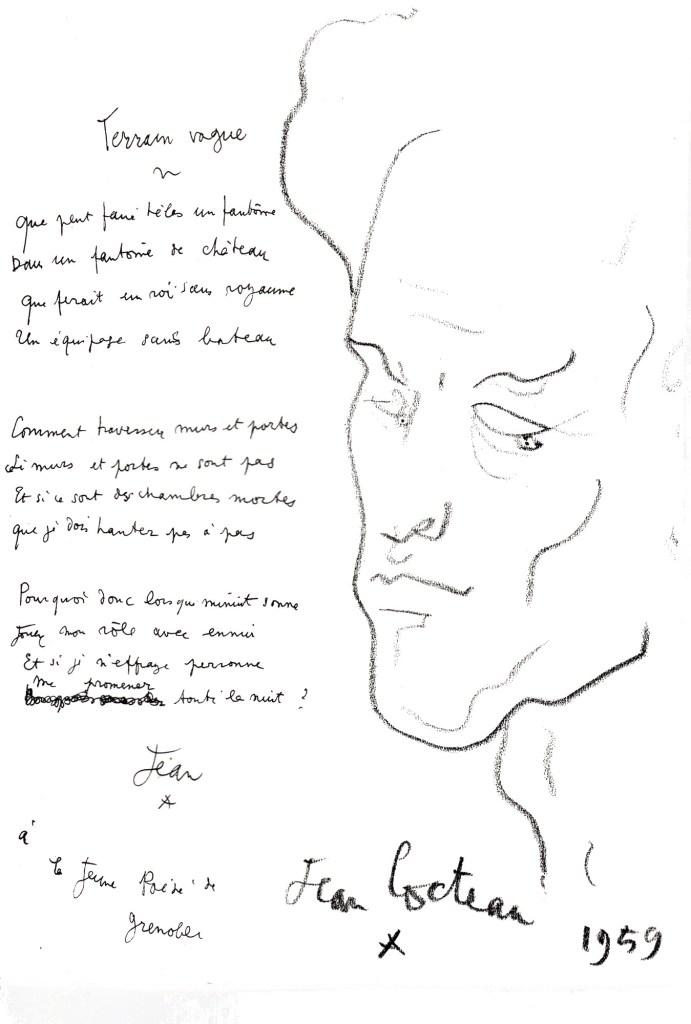 Terrain vague
Que peut faire hélas un fantôme
Dans un fantôme de château
Que ferait un roi sans royaume
Un équipage sans bateau
Comment traverser murs et portes
Si murs et portes ne sont pas
Et si ce sont des chambres mortes
que je dois hanter pas à pas
Pourquoi donc lorsque minuit sonne
Jouer mon rôle avec ennui
Et si je n'effraye personne
me promener
toute la nuit ?
Jean
à
la Jeune Poésie de
Grenoble
Jean Cocteau
1959